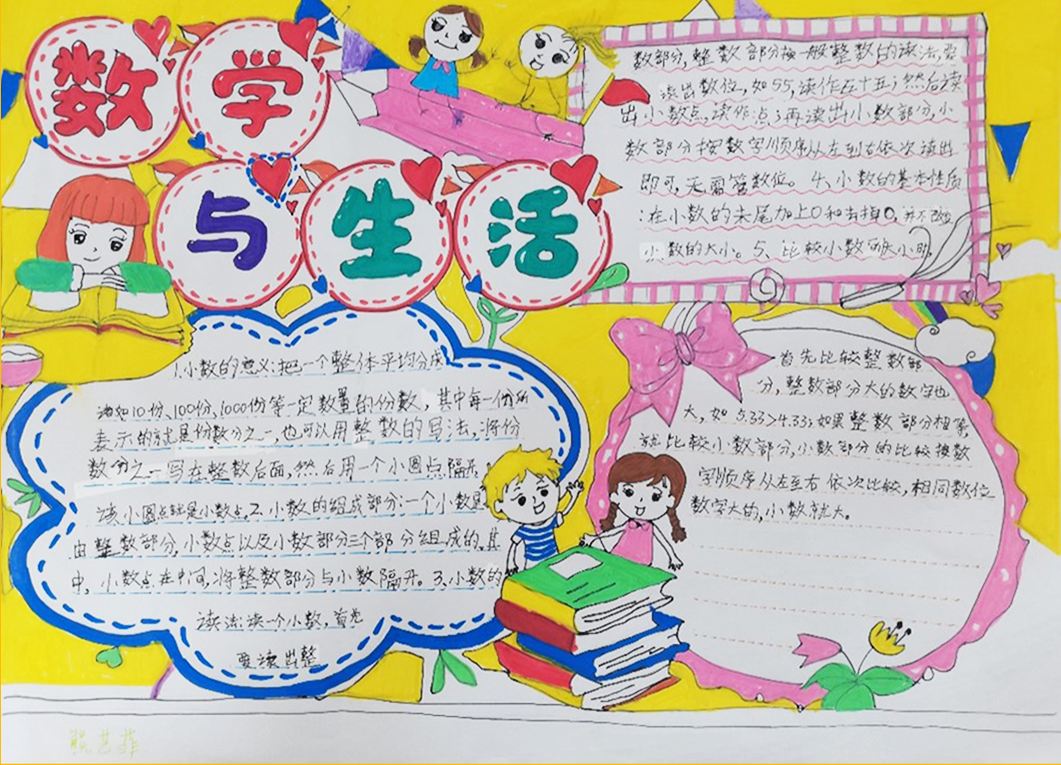 数学
与生活
1.小数的意义:把一个整体平均分成
诸如10份、100份、1000份等一定数量的份数,其中每一份所
表示的就是份数分之一,也可以用整数的写法,将份
数分之一写在整数后面,然后用一个小圆点隔开,
该小圆点就是小数点。2、小数的组成部分:一个小数是
由整数部分,小数点以及小数部分三个部分组成的。其
中,小数点在中间,将整数部分与小数隔开。3、小数的
读法:读一个小数,首先
要读出整
数部分,整数部分按一般整数的读法,要
读出数位,如55,读作五十五;然后读
出小数点,读作:点;再读出小数部分,小
数部分按数字顺序从左到右依次读出
即可,无需管数位。4、小数的基本性质
:在小数的末尾加上0和去掉0,并不改变
小数的大小。5、比较小数的大小时,
首先比较整数部
分,整数部分大的数字也
大,如5.33>4.33;如果整数部分相等,
就比较小数部分,小数部分的比较按数
字顺序从左至右依次比较,相同数位
数字大的,小数就大。